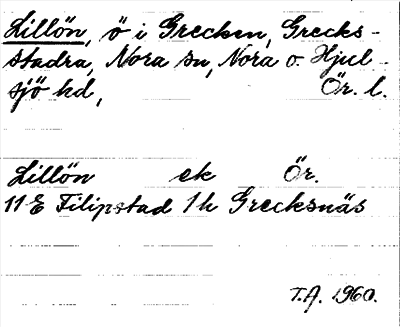 Lillön, ö i Grecken, Grecks-
stadra, Nora sn, Nora o. Hjul-
sjö hd, Ör. l.
Lillön ek Ör.
11 E Filipstad 1h Grecksnäs
T.A. 1960.